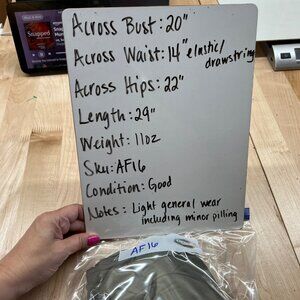 Snapped
Across Bust: 20"
Across Waist: 14" elastic/
drawstring
Across Hips: 22"
Length: 29"
Weight: 11oz
Sku: AF16
Condition: Good
Notes: Light general wear
including minor pilling
AF16